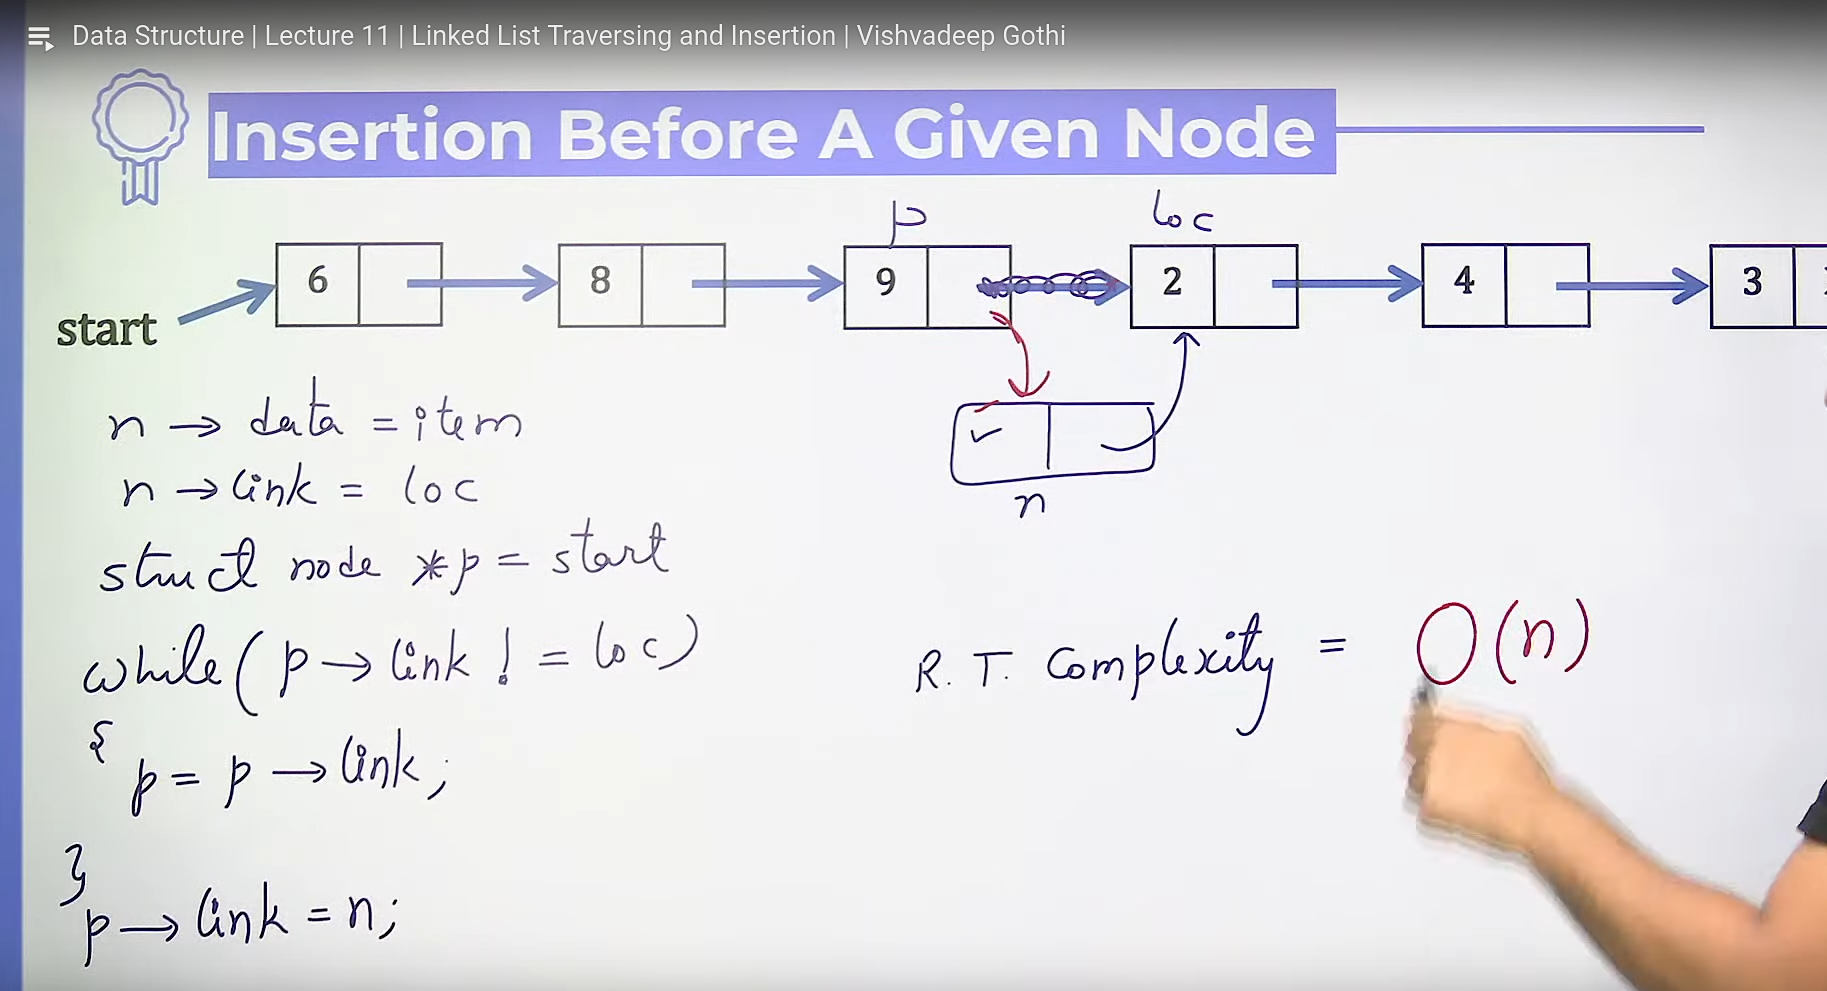 Data Structure | Lecture 11 | Linked List Traversing and Insertion | Vishvadeep Gothi
Insertion Before A Given Node
p loc
6 8 9 2 4 3
start
n → data = item
n → link = loc
n
struct node *p = start
while ( p → link != loc)
R. T. Complexity = O(n)
{
p = p → link;
}
p → link = n;